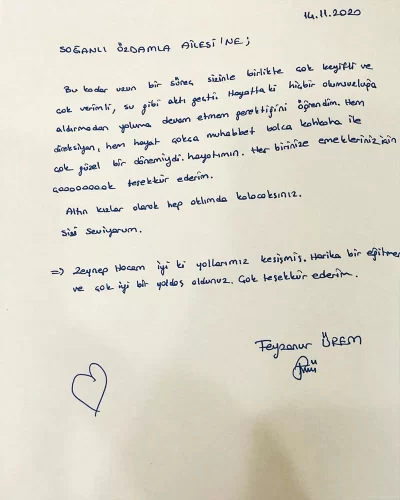 14.11.2020
SOĞANLI ÖZDAMLA AİLESİ'NE;
Bu kadar uzun bir süreç sizinle birlikte çok keyifli ve
çok verimli, su gibi aktı geçti. Hayattaki hiçbir olumsuzluğa
aldırmadan yoluma devam etmem gerektiğini öğrendim. Hem
direksiyon, hem hayat çokça muhabbet bolca kahkaha ile
çok güzel bir dönemiydi hayatımın. Her birinize emekleriniz için
çooooooook teşekkür ederim.
Altın kızlar olarak hep aklımda kalacaksınız.
Sizi seviyorum.
=> Zeynep Hocam iyi ki yollarımız kesişmiş. Harika bir eğitmen
ve çok iyi bir yoldaş oldunuz. Çok teşekkür ederim.
Feyzanur ÜREM